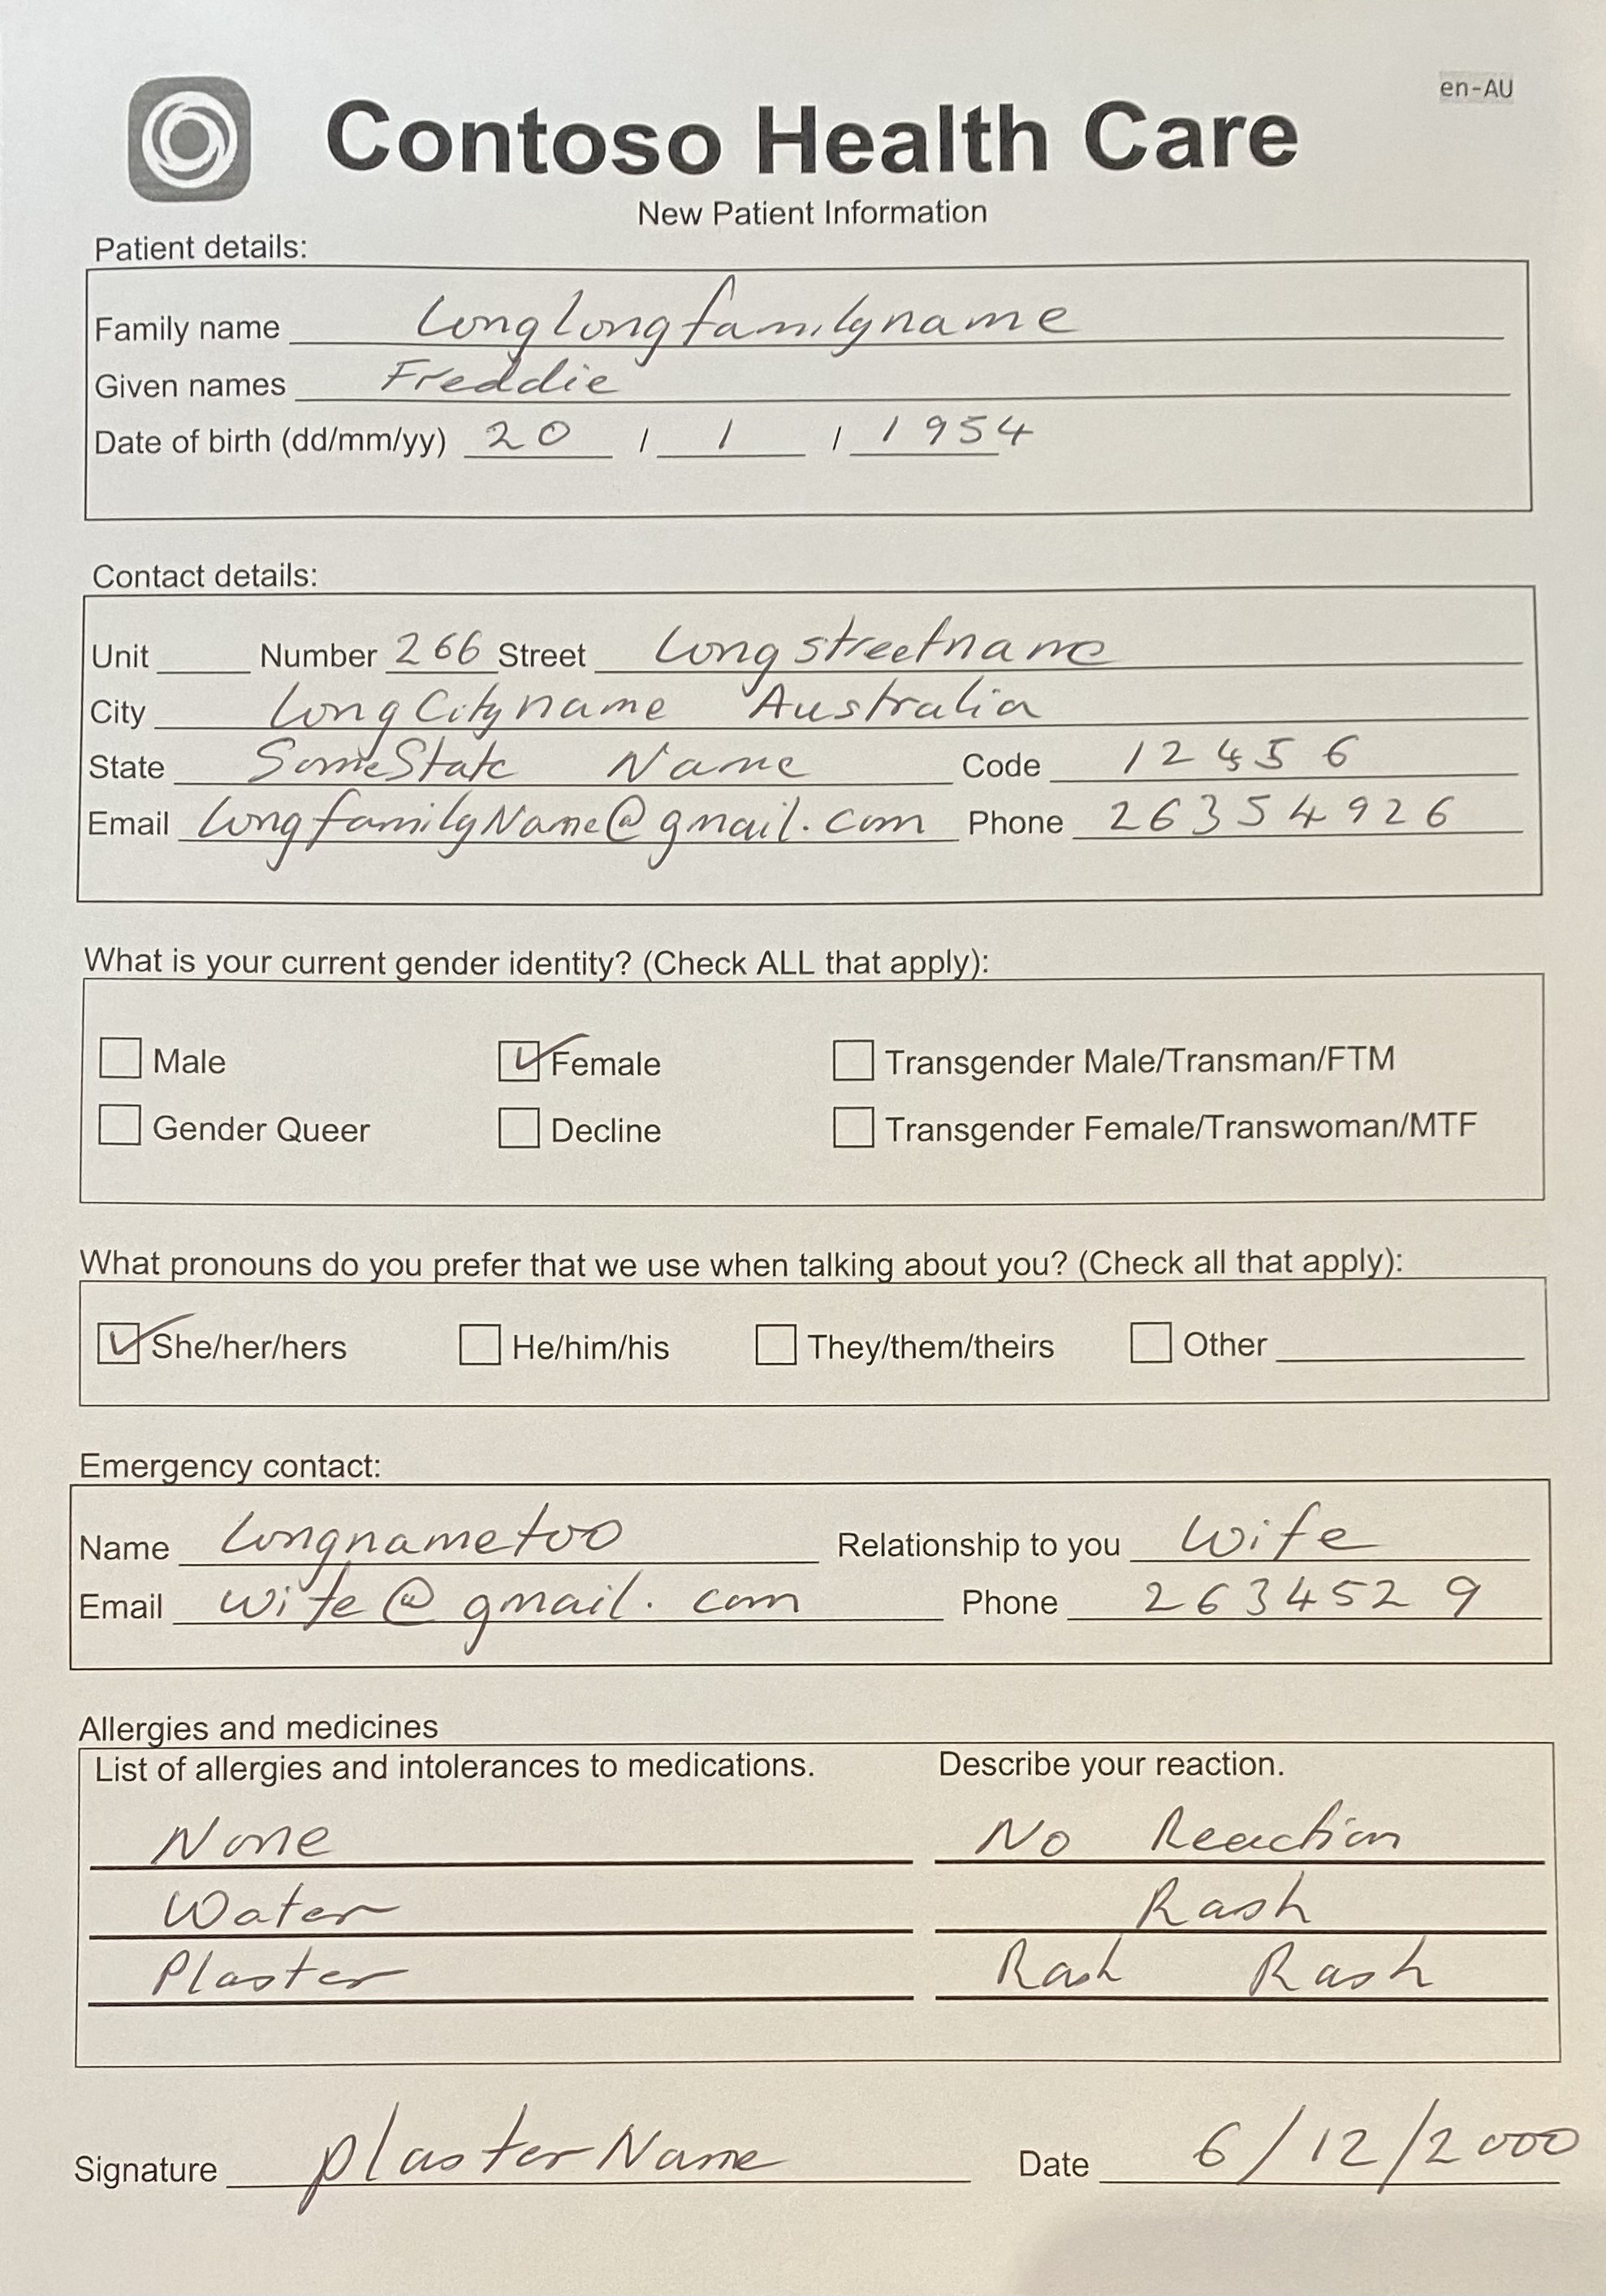 en-AU
Contoso Health Care
New Patient Information
Patient details:
Family name Longlongfamilyname
Given names Freddie
Date of birth (dd/mm/yy) 20 / 1 / 1954
Contact details:
Unit Number 266 Street Longstreetname
City LongCityname Australia
State SomeState Name Code 12456
Email LongfamilyName@gmail.com Phone 26354926
What is your current gender identity? (Check ALL that apply):
Male Female Transgender Male/Transman/FTM
Gender Queer Decline Transgender Female/Transwoman/MTF
What pronouns do you prefer that we use when talking about you? (Check all that apply):
She/her/hers He/him/his They/them/theirs Other
Emergency contact:
Name Longnametoo Relationship to you Wife
Email wife@gmail.com Phone 2634529
Allergies and medicines
List of allergies and intolerances to medications. Describe your reaction.
None No Reaction
Water Rash
Plaster Rash Rash
Signature plasterName Date 6/12/2000